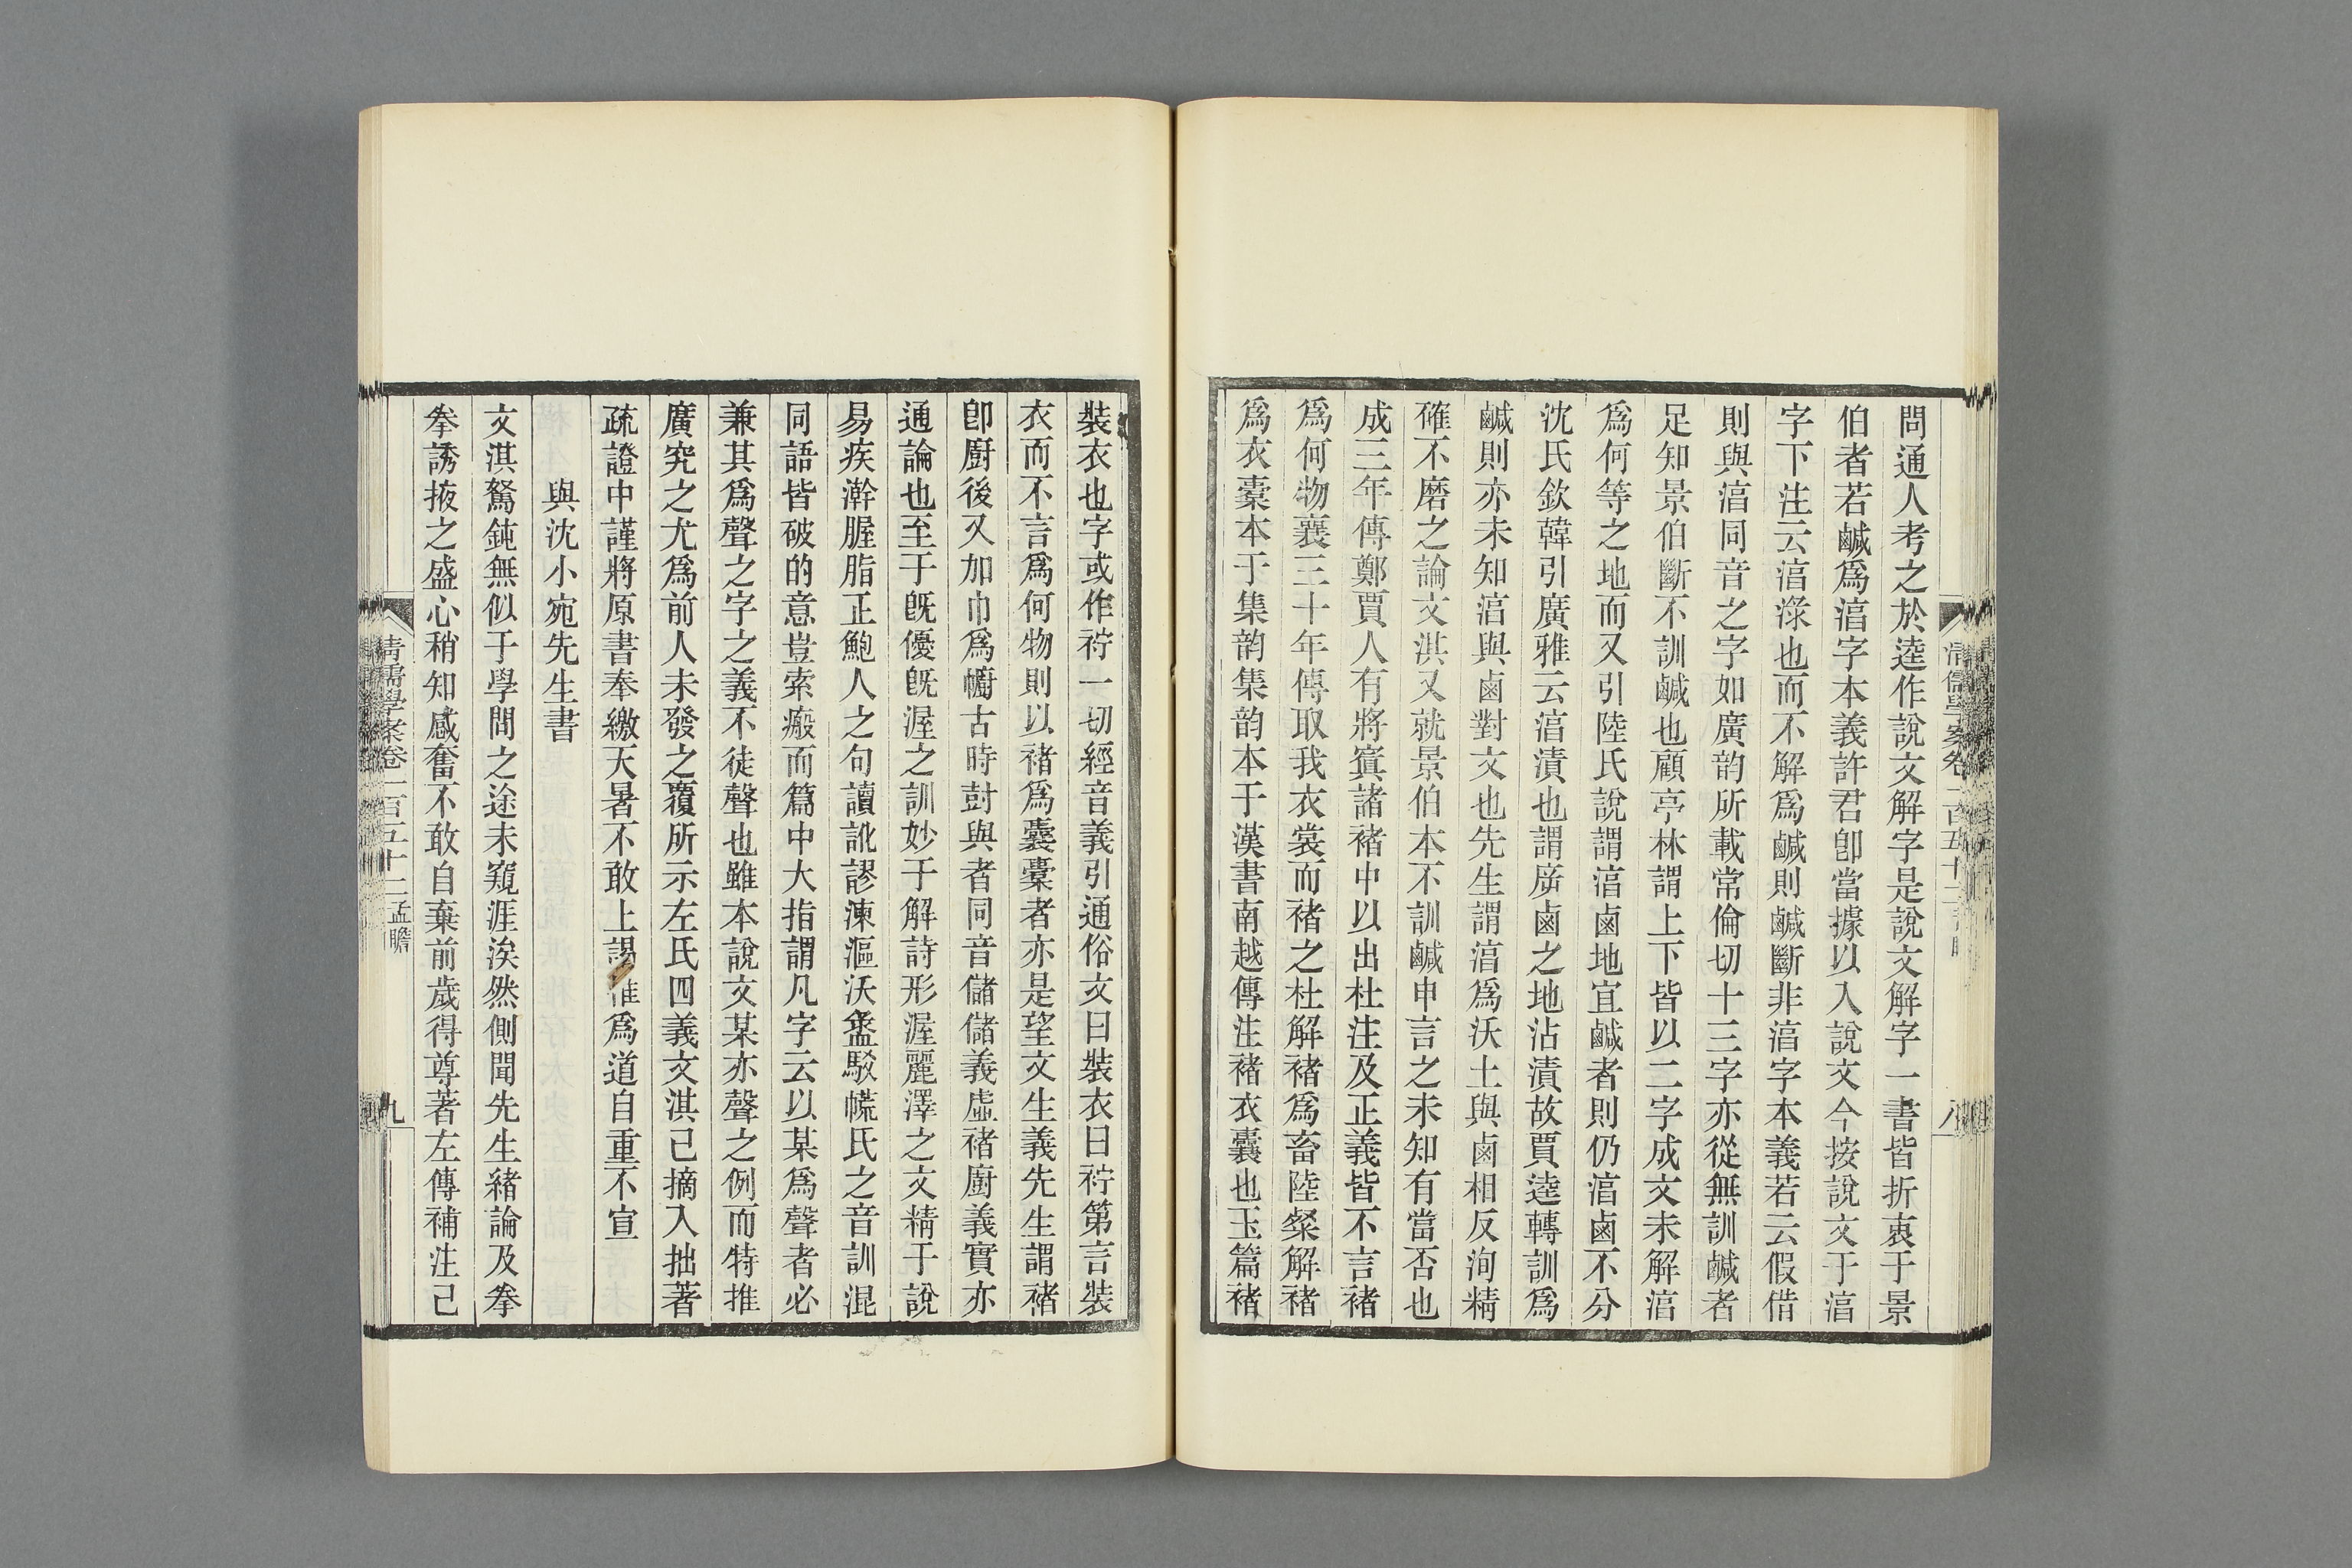 問通人考之於逵作說文解字是說文解字一書皆折衷于景
伯者若鹹爲㵎字本義許君卽當據以入說文今按說文于㵎
字下注云㵎淥也而不解爲鹹則鹹斷非㵎字本義若云假借
則與㵎同音之字如廣韵所載常倫切十三字亦從無訓鹹者
足知景伯斷不訓鹹也顧亭林謂上下皆以二字成文未解㵎
爲何等之地而又引陸氏說謂㵎鹵地宜鹹者則仍㵎鹵不分
沈氏欽韓引廣雅云㵎漬也謂㵎鹵之地沾漬故賈逵轉訓爲
鹹則亦未知㵎與鹵對文也先生謂㵎爲沃土與鹵相反洵精
確不磨之論文淇又就景伯本不訓鹹申言之未知有當否也
成三年傳鄭賈人有將寘諸褚中以出杜注及正義皆不言褚
爲何物襄三十年傳取我衣裳而褚之杜解褚爲畜陸粲解褚
爲衣橐本于集韵集韵本于漢書南越傳注褚衣囊也玉篇褚
裝衣也字或作衧一切經音義引通俗文曰裝衣曰衧第言裝
衣而不言爲何物則以褚爲囊橐者亦是望文生義先生謂褚
卽廚後又加巾爲幮古時尌與者同音儲儲義虛褚廚義實亦
通論也至于旣優旣渥之訓妙于解詩形渥麗澤之文精于說
易疾澣腛脂正鮑人之句讀訛謬湅漚沃盝駁㡛氏之音訓混
同語皆破的意豈索瘢而篇中大指謂凡字云以某爲聲者必
兼其爲聲之字之義不徒聲也雖本說文某亦聲之例而特推
廣究之尤爲前人未發之覆所示左氏四義文淇已摘入拙著
疏證中謹將原書奉繳天暑不敢上謁惟爲道自重不宣
與沈小宛先生書
文淇駑鈍無似于學問之途未窺涯涘然側聞先生緒論及拳
拳誘掖之盛心稍知感奮不敢自棄前歲得尊著左傳補注已
清儒學案卷一百五十二孟瞻
九